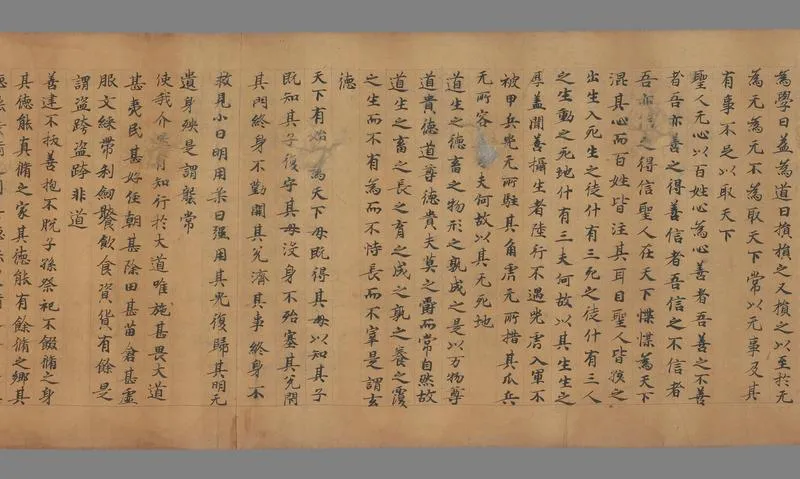 為學日益為道日損損之又損之以至於无
為无為无不為取天下常以无事及其
有事不足以取天下
聖人无心以百姓心為心善者吾善之不善
者吾亦善之得善信者吾信之不信者
吾亦信之得信聖人在天下惵惵為天下
混其心而百姓皆注其耳目聖人皆孩之
出生入死生之徒什有三死之徒什有三人
之生動之死地什有三夫何故以其生生之
厚蓋聞善攝生者陸行不遇兕虎入軍不
被甲兵兕无所駐其角虎无所措其爪兵
无所容夫何故以其无死地
道生之德畜之物形之孰成之是以万物尊
道貴德道尊德貴夫莫之爵而常自然故
道生之畜之長之育之成之孰之養之覆
之生而不有為而不恃長而不宰是謂玄
德
天下有始為天下母既得其母以知其子
既知其子復守其母沒身不殆塞其兌閉
其門終身不勤開其兌濟其事終身不
救見小曰明用柔曰强用其光復歸其明无
遺身殃是謂襲常
使我介有知行於大道唯施甚畏大道
甚夷民甚好徑朝甚除田甚苗倉甚虛
服文綵帶利劒饜飲食資貨有餘是
謂盜誇盜誇非道
善建不拔善抱不脫子孫祭祀不餟脩之身
其德能真脩之家其德能有餘脩之鄉其